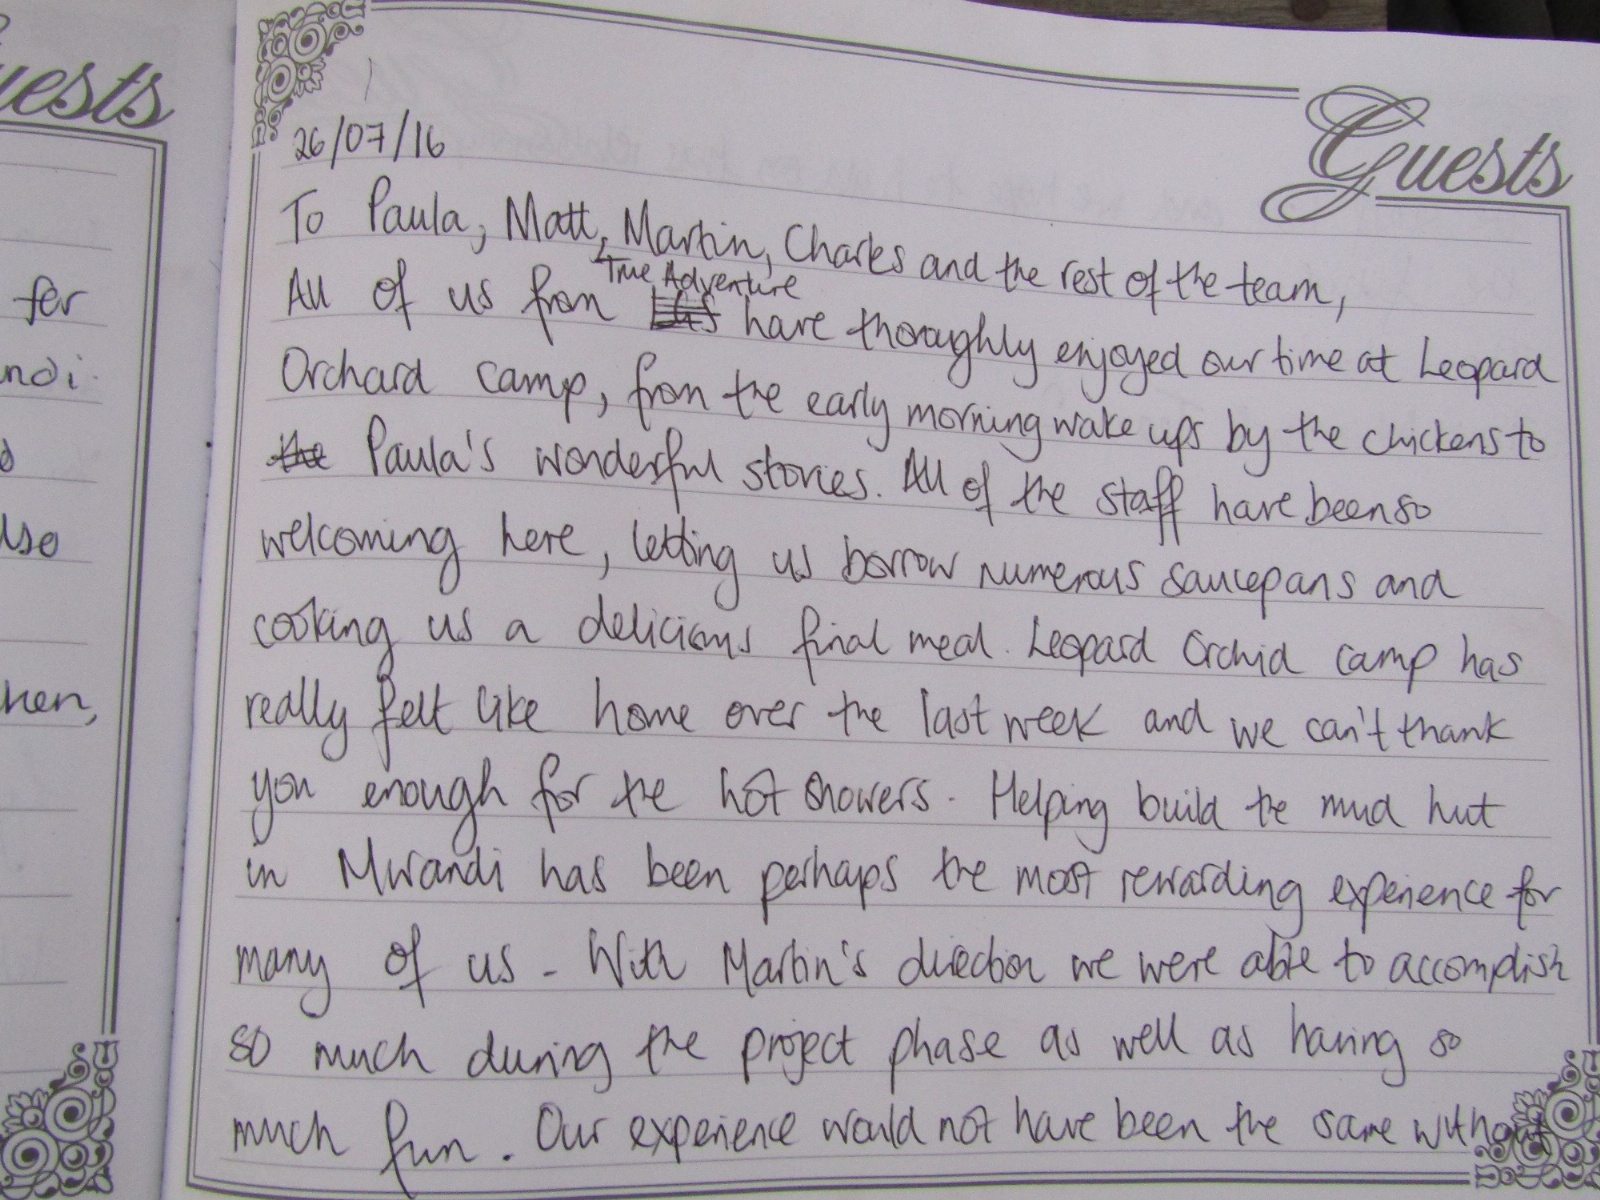 uests
for
ndi
so
hen,
Guests
26/07/16
To Paula, Matt, Martin, Charles and the rest of the team,
True Adventure
All of us from have thoroughly enjoyed our time at Leopard
Orchard camp, from the early morning wake ups by the chickens to
the Paula's wonderful stories. All of the staff have been so
welcoming here, letting us borrow numerous saucepans and
cooking us a delicious final meal. Leopard Orchid camp has
really felt like home over the last week and we can't thank
you enough for the hot showers. Helping build the mud hut
in Mwandi has been perhaps the most rewarding experience for
many of us - With Martin's direction we were able to accomplish
so much during the project phase as well as having so
much fun. Our experience would not have been the same without